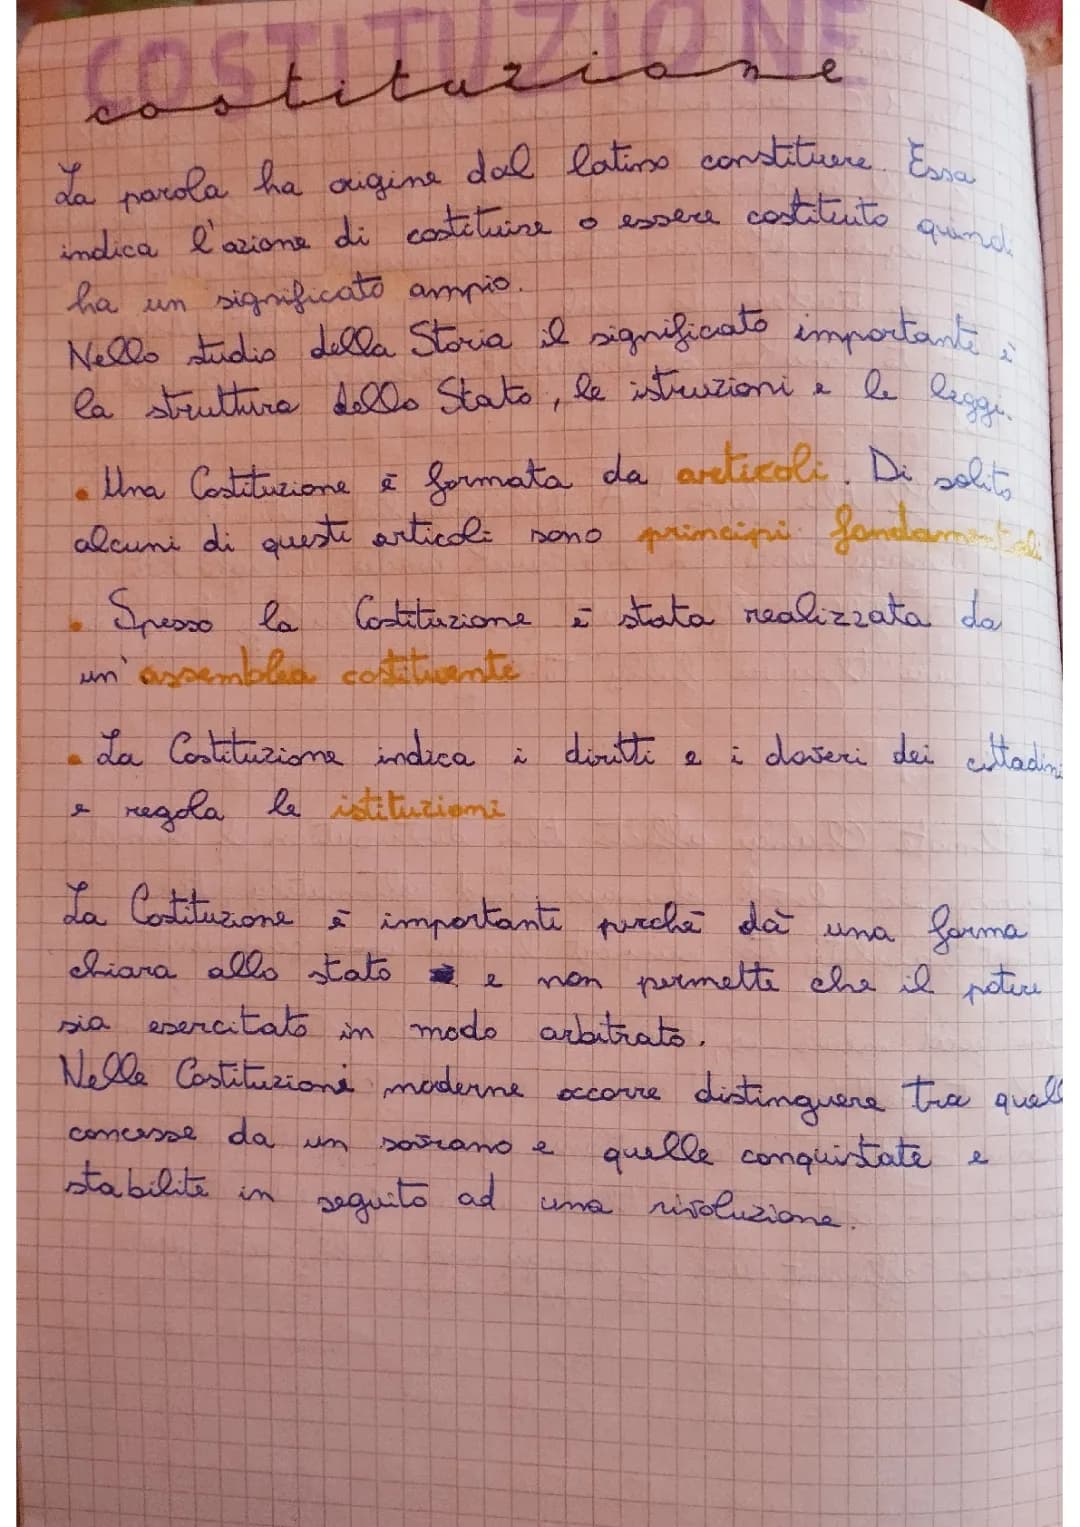 COSTITUZIONE
costituzione
La parola ha origine dal latino constituere. Essa
indica l'azione di costituire o essere costituito quindi
ha un significato ampio.
Nello studio della Storia il significato importante è
la struttura dello Stato, le istruzioni e le leggi.
• Una Costituzione è formata da articoli. Di solito
alcuni di questi articoli sono principi fondamentali
• Spesso la Costituzione è stata realizzata da
un'assemblea costituente
• La Costituzione indica i diritti e i doveri dei cittadini
e regola le istituzioni
La Costituzione è importante perchè dà una forma
chiara allo stato e non permette che il potere
sia esercitato in modo arbitrato.
Nelle Costituzioni moderne occorre distinguere tra quell
concesse da un sovrano e quelle conquistate e
stabilite in seguito ad una rivoluzione.